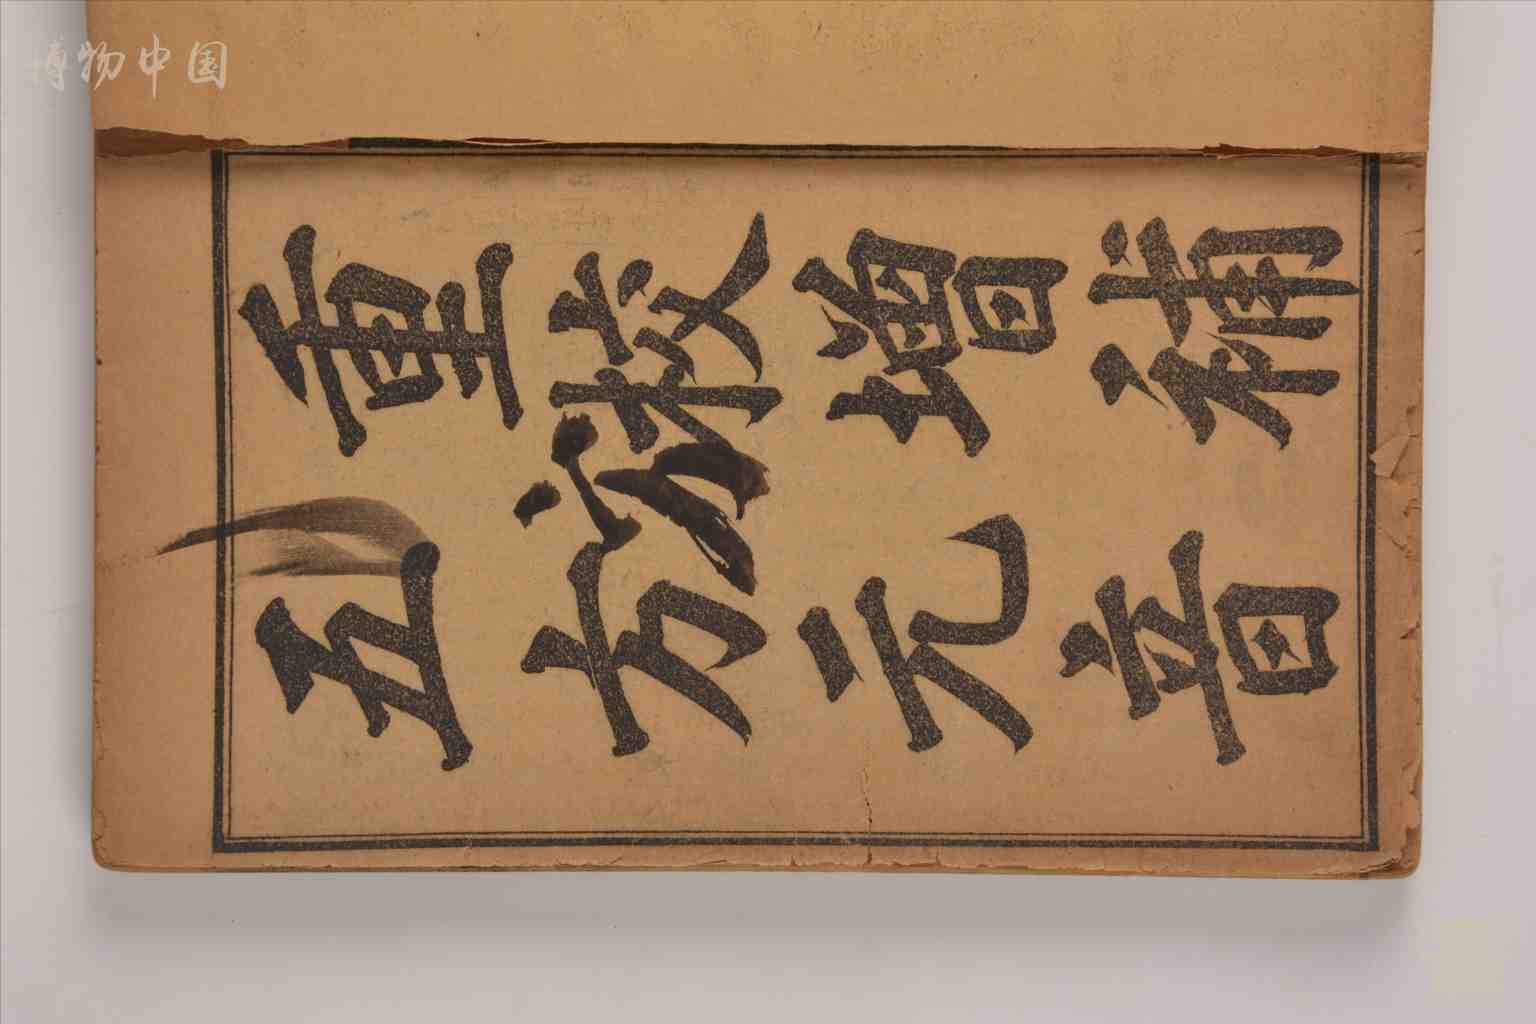 博物中国
重校增補
五方元音